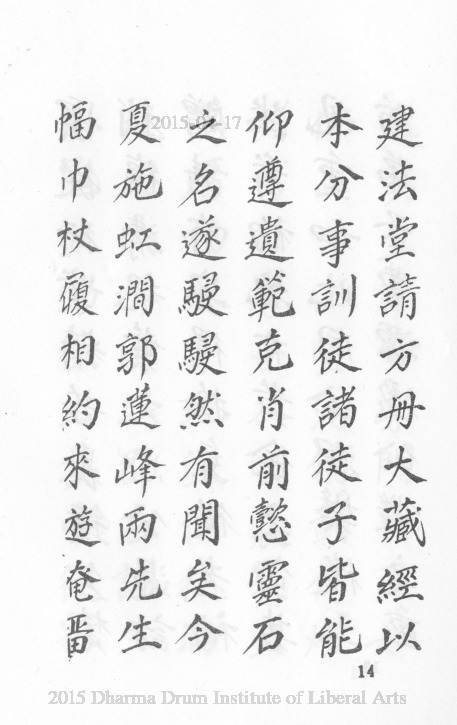 建法堂請方冊大藏經以
本分事訓徒諸徒子皆能
仰遵遺範克肖前懿靈石
之名遂駸駸然有聞矣今
夏施虹澗郭蓮峰兩先生
幅巾杖履相約來遊奄畱
14
2015 Dharma Drum Institute of Liberal Arts